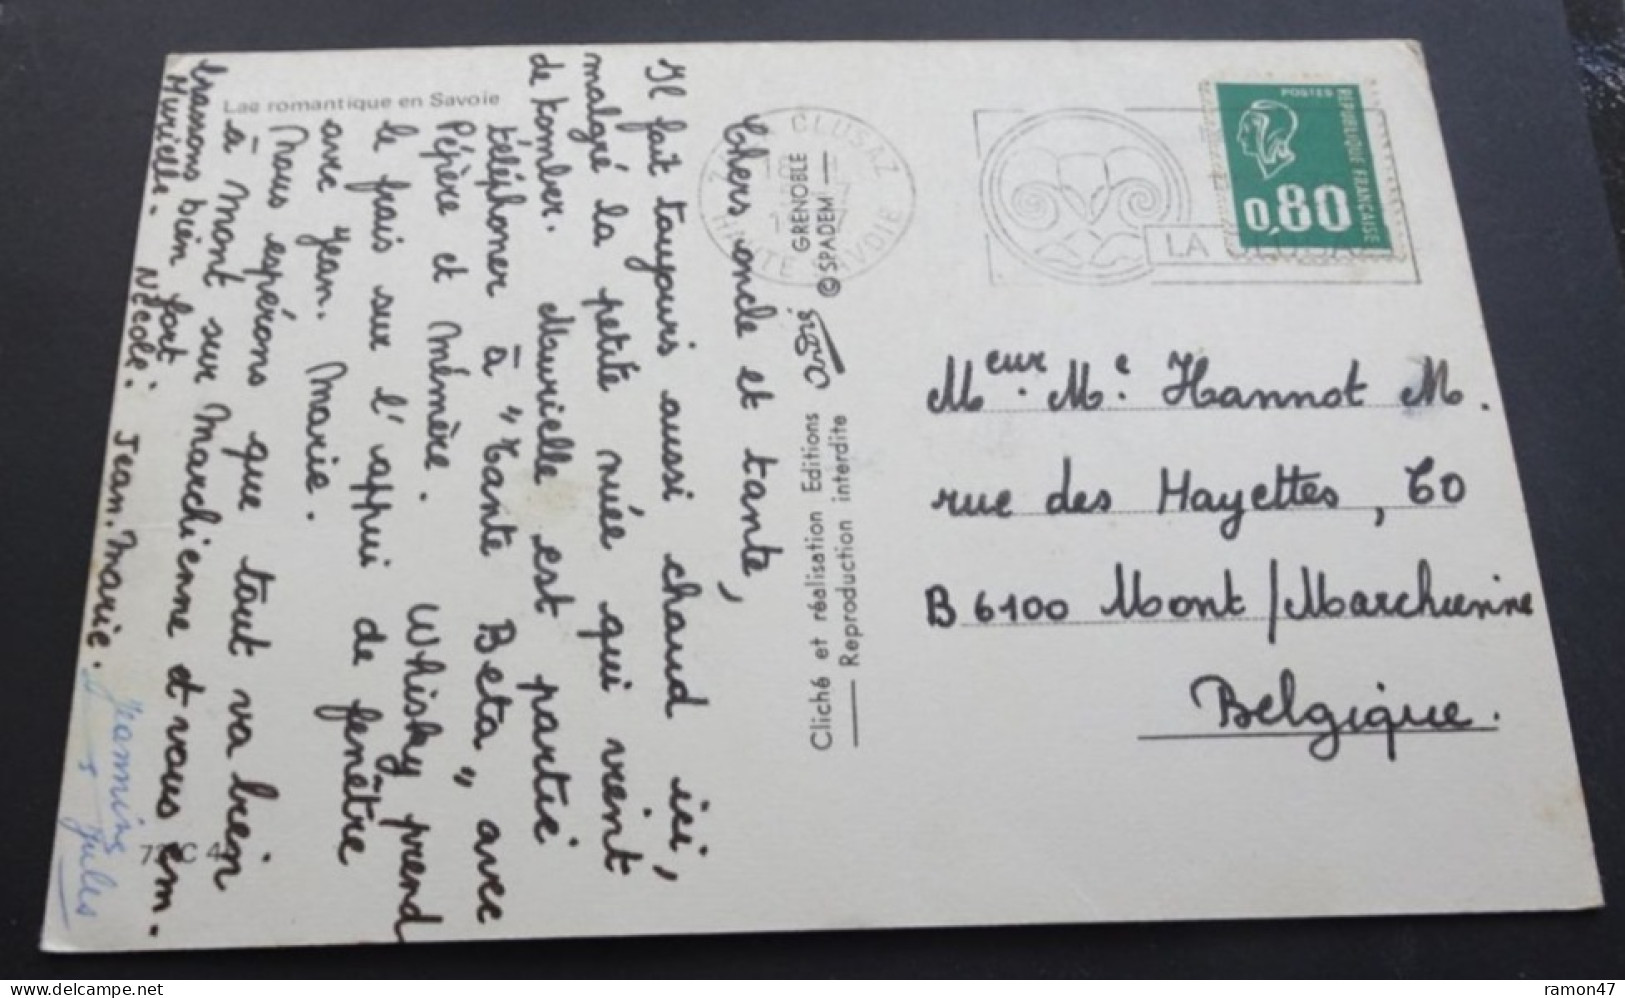 Lac romantique en Savoie
Chers oncle et tante,
Il fait toujours aussi chaud ici,
malgré la petite nuée qui vient
de tomber. Murielle est partie
téléphoner à "Tante Beta" avec
Pépère et Mémère. Whisky prend
le frais sur l'appui de fenêtre
avec Jean. Marie.
Nous espérons que tout va bien
à Mont sur Marchienne et vous em-
brassons bien fort
Murielle. Nicole. Jean. Marie.
Jules
CLUSAZ
HAUTE SAVOIE
GRENOBLE
© SPADEM
Cliché et réalisation Editions
Reproduction interdite
POSTES
REPUBLIQUE FRANÇAISE
0,80
LA
Meur. Me. Hannot M.
rue des Hayettes, 60
B 6100 Mont/Marchienne
Belgique.
ramon47